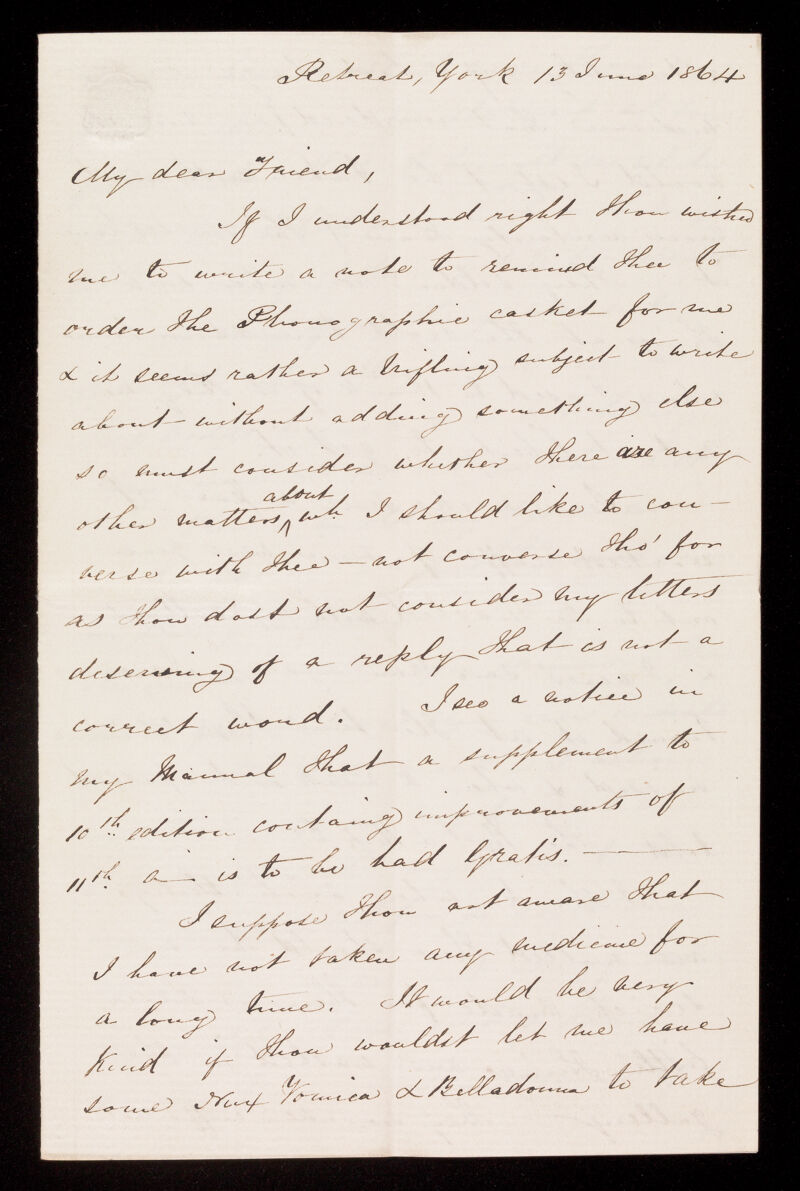 Retreat, York 13 June 1864
My dear Friend,
If I understood right thou wished
me to write a note to remind thee to
order the Phonographic casket for me
& it seems rather a trifling subject to write
about without adding something else
so must consider whether there are any
about
other matters wh. I should like to con-
verse with thee - not converse tho' for
as thou dost not consider my letters
deserving of a reply that is not a
correct word. I see a notice in
my Manual that a supplement to
10th edition containg improvements of
11th a— is to be had Gratis. ———
I suppose thou art aware that
I have not taken any medicine for
a long time. It would be very
kind if thou wouldst let me have
some Nux Vomica & Belladonna to take